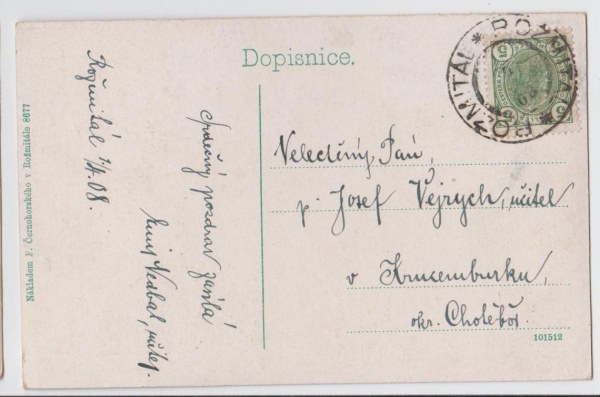 Dopisnice.
Rožmitál 7/4.08.
Srdečný pozdrav zasílá
Emil Nedbal, učitel.
Velectěný Pan,
p. Josef Vejrych, učitel
v Krucemburku,
okr. Chotěboř.
101512
Nákladem F. Černohorského v Rožmitále 8677
ROŽMITÁL * ROŽMITÁL *
5